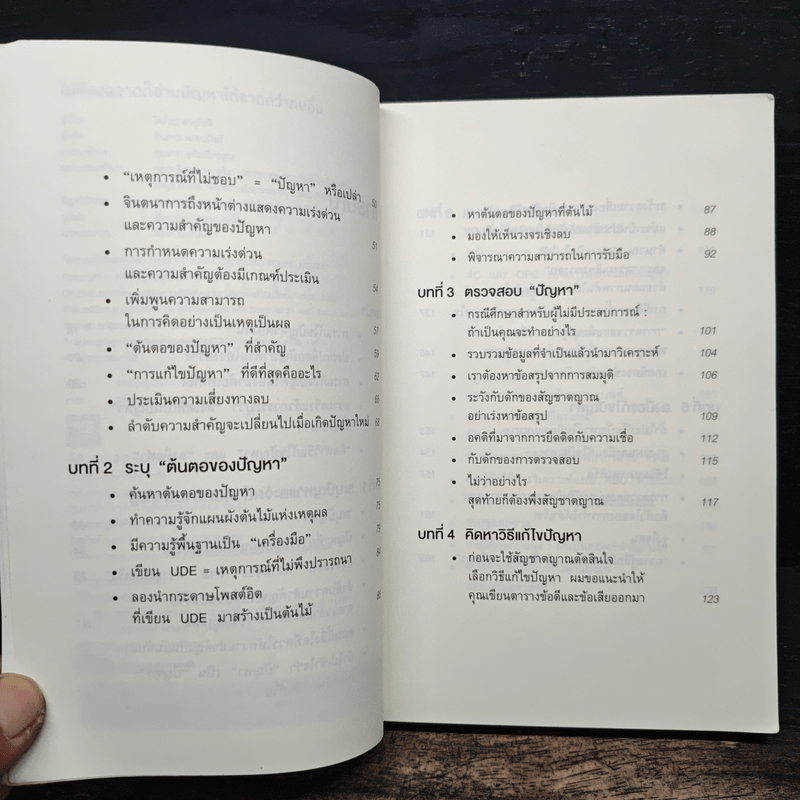 • “เหตุการณ์ที่ไม่ชอบ” = “ปัญหา” หรือเปล่า 50
• จินตนาการถึงหน้าต่างแสดงความเร่งด่วน
และความสำคัญของปัญหา 51
• การกำหนดความเร่งด่วน
และความสำคัญต้องมีเกณฑ์ประเมิน 54
• เพิ่มพูนความสามารถ
ในการคิดอย่างเป็นเหตุเป็นผล 57
• “ต้นตอของปัญหา” ที่สำคัญ 59
• “การแก้ไขปัญหา” ที่ดีที่สุดคืออะไร 62
• ประเมินความเสี่ยงทางลบ 65
• ลำดับความสำคัญจะเปลี่ยนไปเมื่อเกิดปัญหาใหม่
บทที่ 2 ระบุ “ต้นตอของปัญหา”
• ค้นหาต้นตอของปัญหา 75
• ทำความรู้จักแผนผังต้นไม้แห่งเหตุผล 75
• มีความรู้พื้นฐานเป็น “เครื่องมือ” 79
• เขียน UDE = เหตุการณ์ที่ไม่พึงปรารถนา 84
• ลองนำกระดาษโพสต์อิต
ที่เขียน UDE มาสร้างเป็นต้นไม้ 85
• หาต้นตอของปัญหาที่ต้นไม้ 87
• มองให้เห็นวงจรเชิงลบ 88
• พิจารณาความสามารถในการรับมือ 92
บทที่ 3 ตรวจสอบ “ปัญหา”
• กรณีศึกษาสำหรับผู้ไม่มีประสบการณ์ :
ถ้าเป็นคุณจะทำอย่างไร 101
• รวบรวมข้อมูลที่จำเป็นแล้วนำมาวิเคราะห์ 104
• เราต้องหาข้อสรุปจากการสมมุติ 106
• ระวังกับดักของสัญชาตญาณ
อย่าเร่งหาข้อสรุป 109
• อคติที่มาจากการยึดติดกับความเชื่อ 112
• กับดักของการตรวจสอบ 115
• ไม่ว่าอย่างไร
สุดท้ายก็ต้องพึ่งสัญชาตญาณ 117
บทที่ 4 คิดหาวิธีแก้ไขปัญหา
• ก่อนจะใช้สัญชาตญาณตัดสินใจ
เลือกวิธีแก้ไขปัญหา ผมขอแนะนำให้
คุณเขียนตารางข้อดีและข้อเสียออกมา 123